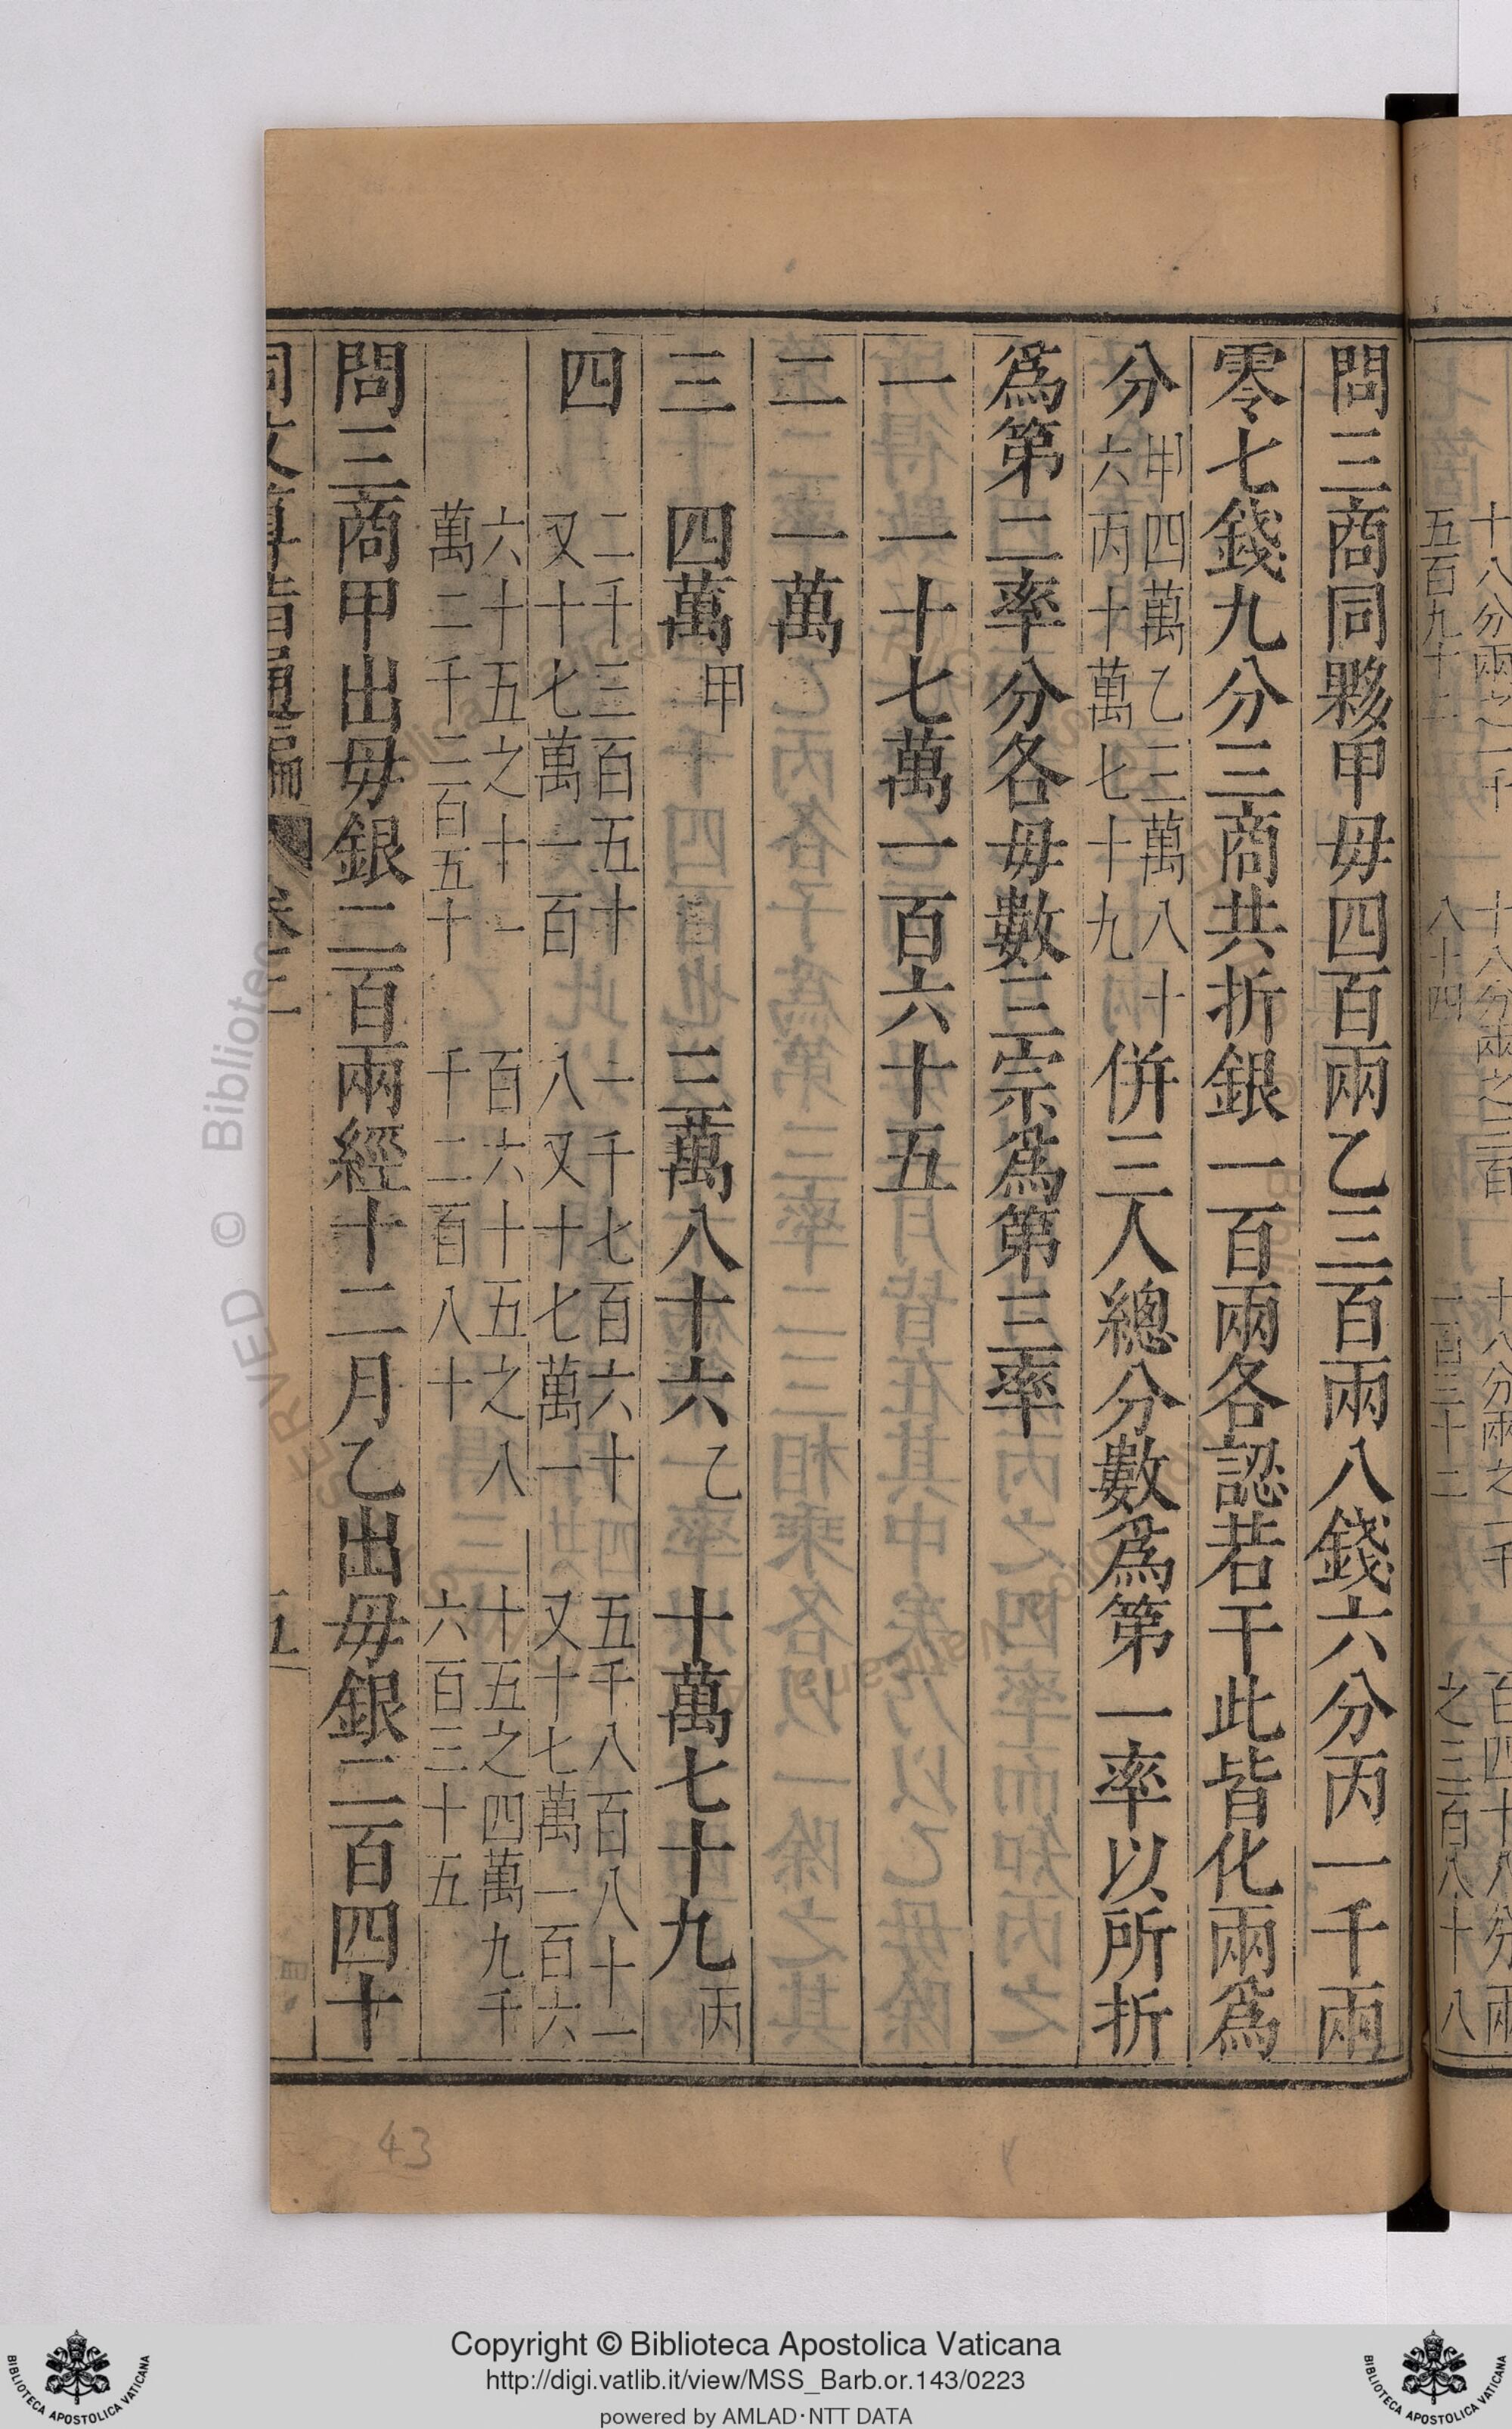 十八分兩之一千　十八分兩之三百　十八分兩之一千　百四十八分兩
五百九十二　八十四　一百三十二　之三百八十八
問三商同夥甲毋四百兩乙三百兩八錢六分丙一千兩
零七錢九分三商共折銀一百兩各認若干此皆化兩爲
分
甲四萬乙三萬八十
六丙十萬七十九
併三人總分數爲第一率以所折
爲第二率分各毋數三宗爲第三率
一　一十七萬一百六十五
二　一萬
三　四萬甲　三萬八十六乙　十萬七十九丙
四
二千三百五十　一千七百六十　五千八百八十一
又十七萬一百　八又十七萬一　又十七萬一百六
六十五之十一　百六十五之八　十五之四萬九千
萬二千二百五十　千二百八十　六百三十五
問三商甲出毋銀三百兩經十二月乙出毋銀二百四十
同文算指通編　卷三　五
43
Copyright © Biblioteca Apostolica Vaticana
http://digi.vatlib.it/view/MSS_Barb.or.143/0223
powered by AMLAD·NTT DATA
BIBLIOTECA APOSTOLICA VATICANA
BIBLIOTECA APOSTOLICA VATICANA